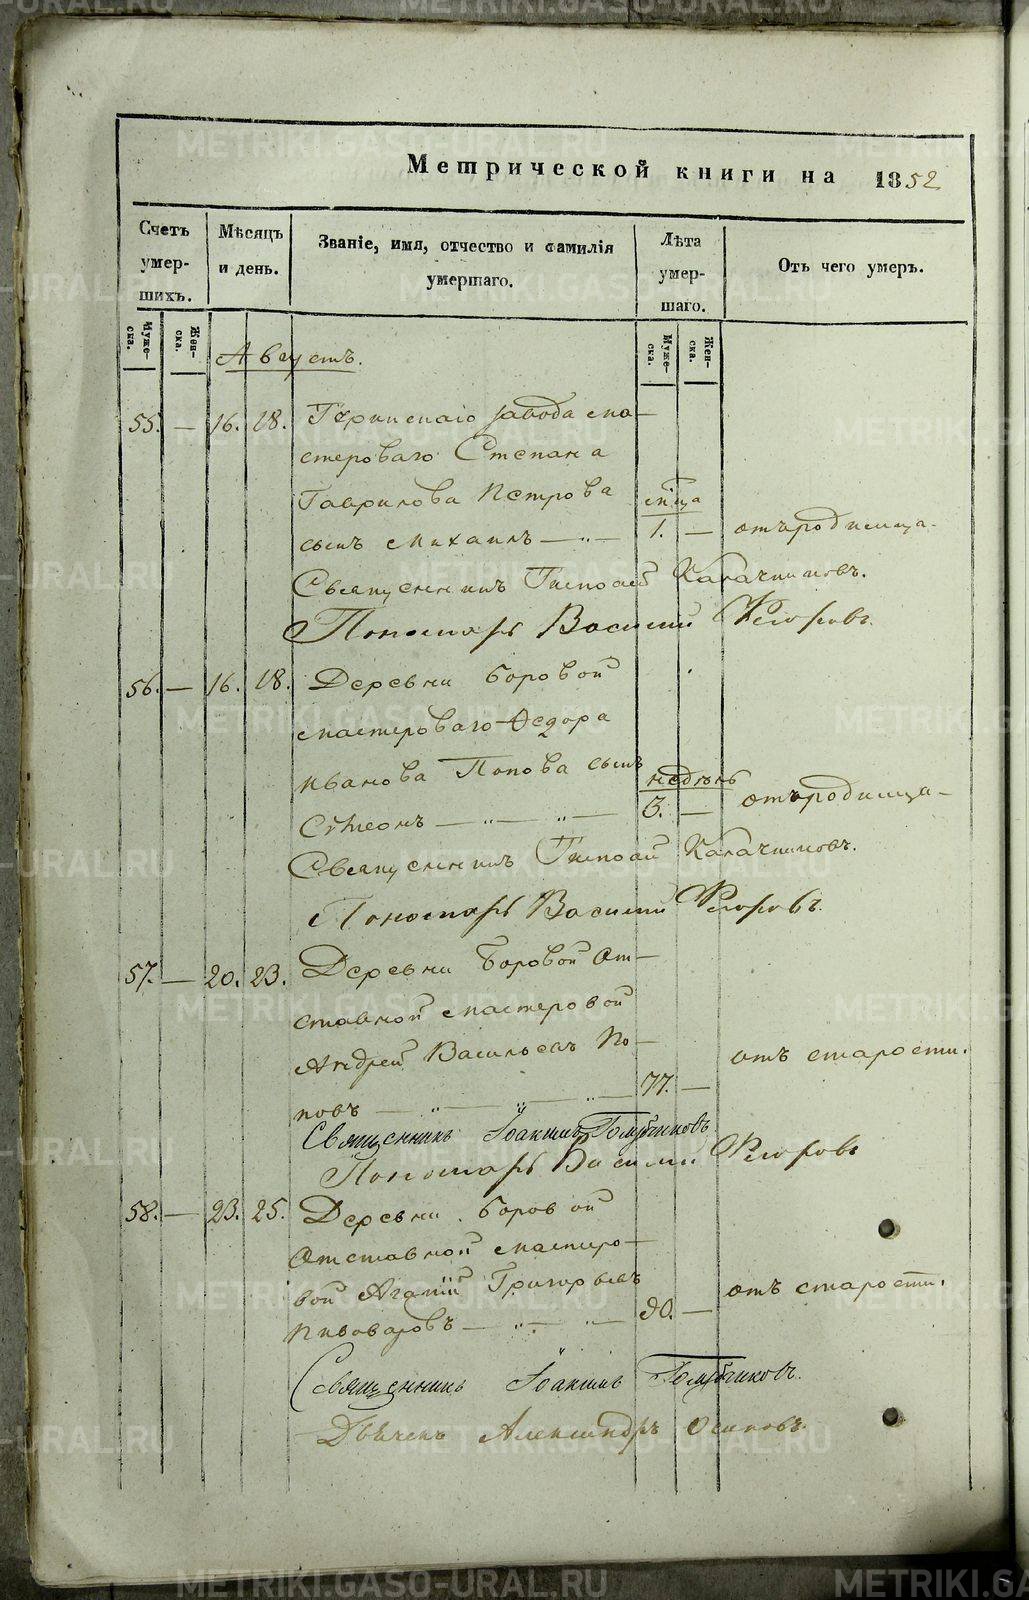 Метрической книги на 1852
Счетъ умер-шихъ.
Мѣсяцъ и день.
Званіе, имя, отчество и фамилія умершаго.
Лѣта умер-шаго.
Отъ чего умеръ.
Муже-ска.
Жен-ска.
Муже-ска.
Жен-ска.
Августъ.
55. — 16. 18.
завода ма-
стероваго Степана
Гаврилова Петрова мца
сынъ Михаилъ — „ — 1. — отъ родимца.
Священникъ Калачниковъ.
Пономарь Василий Флоровъ.
56. — 16. 18. Деревни Боровой
мастероваго Ѳедора
Иванова Попова сынъ недѣль
Сѷмеонъ — „ — „ — 3. — отъ родимца —
Священникъ Калачниковъ.
Пономарь Василий Флоровъ.
57. — 20. 23. Деревни Боровой От-
ставной мастеровой
Андрей Васильевъ По-
повъ — „ — „ — „ — 77. — отъ старости.
Священникъ Іоакимъ Голубчиковъ
Пономарь Василий Флоровъ
58. — 23. 25. Деревни Боровой
Отставной мастеро-
вой Агапій Григорьевъ
Пивоваровъ — „ — „ — 90. — отъ старости.
Священникъ Іоакимъ Голубчиковъ.
Дьячекъ Александръ Осиповъ.
METRIKI.GASO-URAL.RU